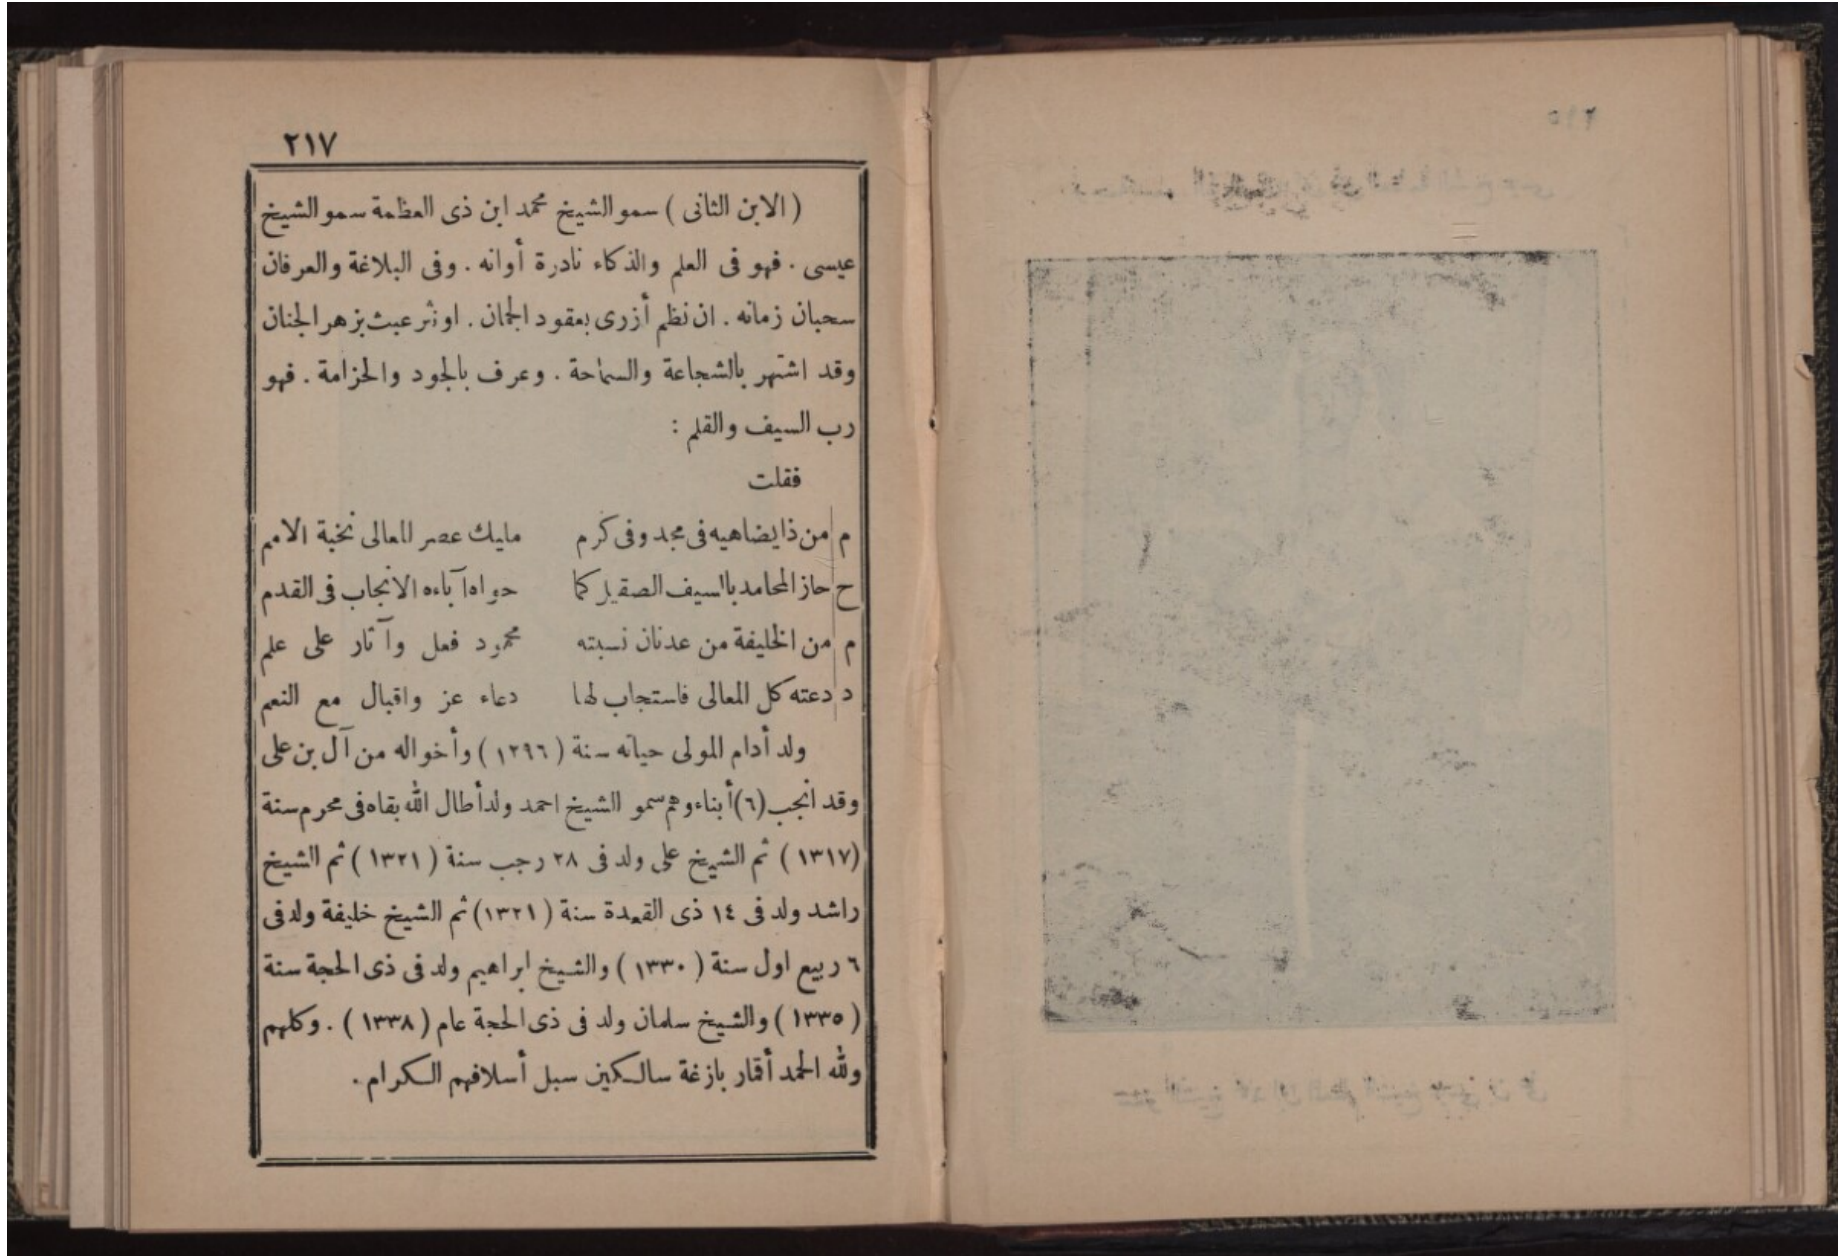 ٢١٧
( الابن الثانى ) سمو الشيخ محمد ابن ذى العظمة سمو الشيخ
عيسى . فهو فى العلم والذكاء نادرة أوانه . وفى البلاغة والعرفان
سحبان زمانه . ان نظم أزرى بعقود الجمان . او نثر عبث بزهر الجنان
وقد اشتهر بالشجاعة والسماحة . وعرف بالجود والحزامة . فهو
رب السيف والقلم :
فقلت
م من ذا يضاهيه فى مجد وفى كرم مليك عصر المعالى نخبة الامم
ح حاز المحامد بالسيف الصقيل كما حواه آباءه الانجاب فى القدم
م من الخليفة من عدنان نسبته محمود فعل وآثار على علم
د دعته كل المعالى فاستجاب لها دعاء عز واقبال مع النعم
ولد أدام المولى حياته سنة ( ١٢٩٦ ) وأخواله من آل بن على
وقد انجب (٦) أبناء وهم سمو الشيخ احمد ولد أطال الله بقاه فى محرم سنة
( ١٣١٧ ) ثم الشيخ على ولد فى ٢٨ رجب سنة ( ١٣٢١ ) ثم الشيخ
راشد ولد فى ١٤ ذى القعدة سنة ( ١٣٢١ ) ثم الشيخ خليفة ولد فى
٦ ربيع اول سنة ( ١٣٣٠ ) والشيخ ابراهيم ولد فى ذى الحجة سنة
( ١٣٣٥ ) والشيخ سلمان ولد فى ذى الحجة عام ( ١٣٣٨ ) . وكلهم
ولله الحمد أقمار بازغة سالكين سبل أسلافهم الكرام .